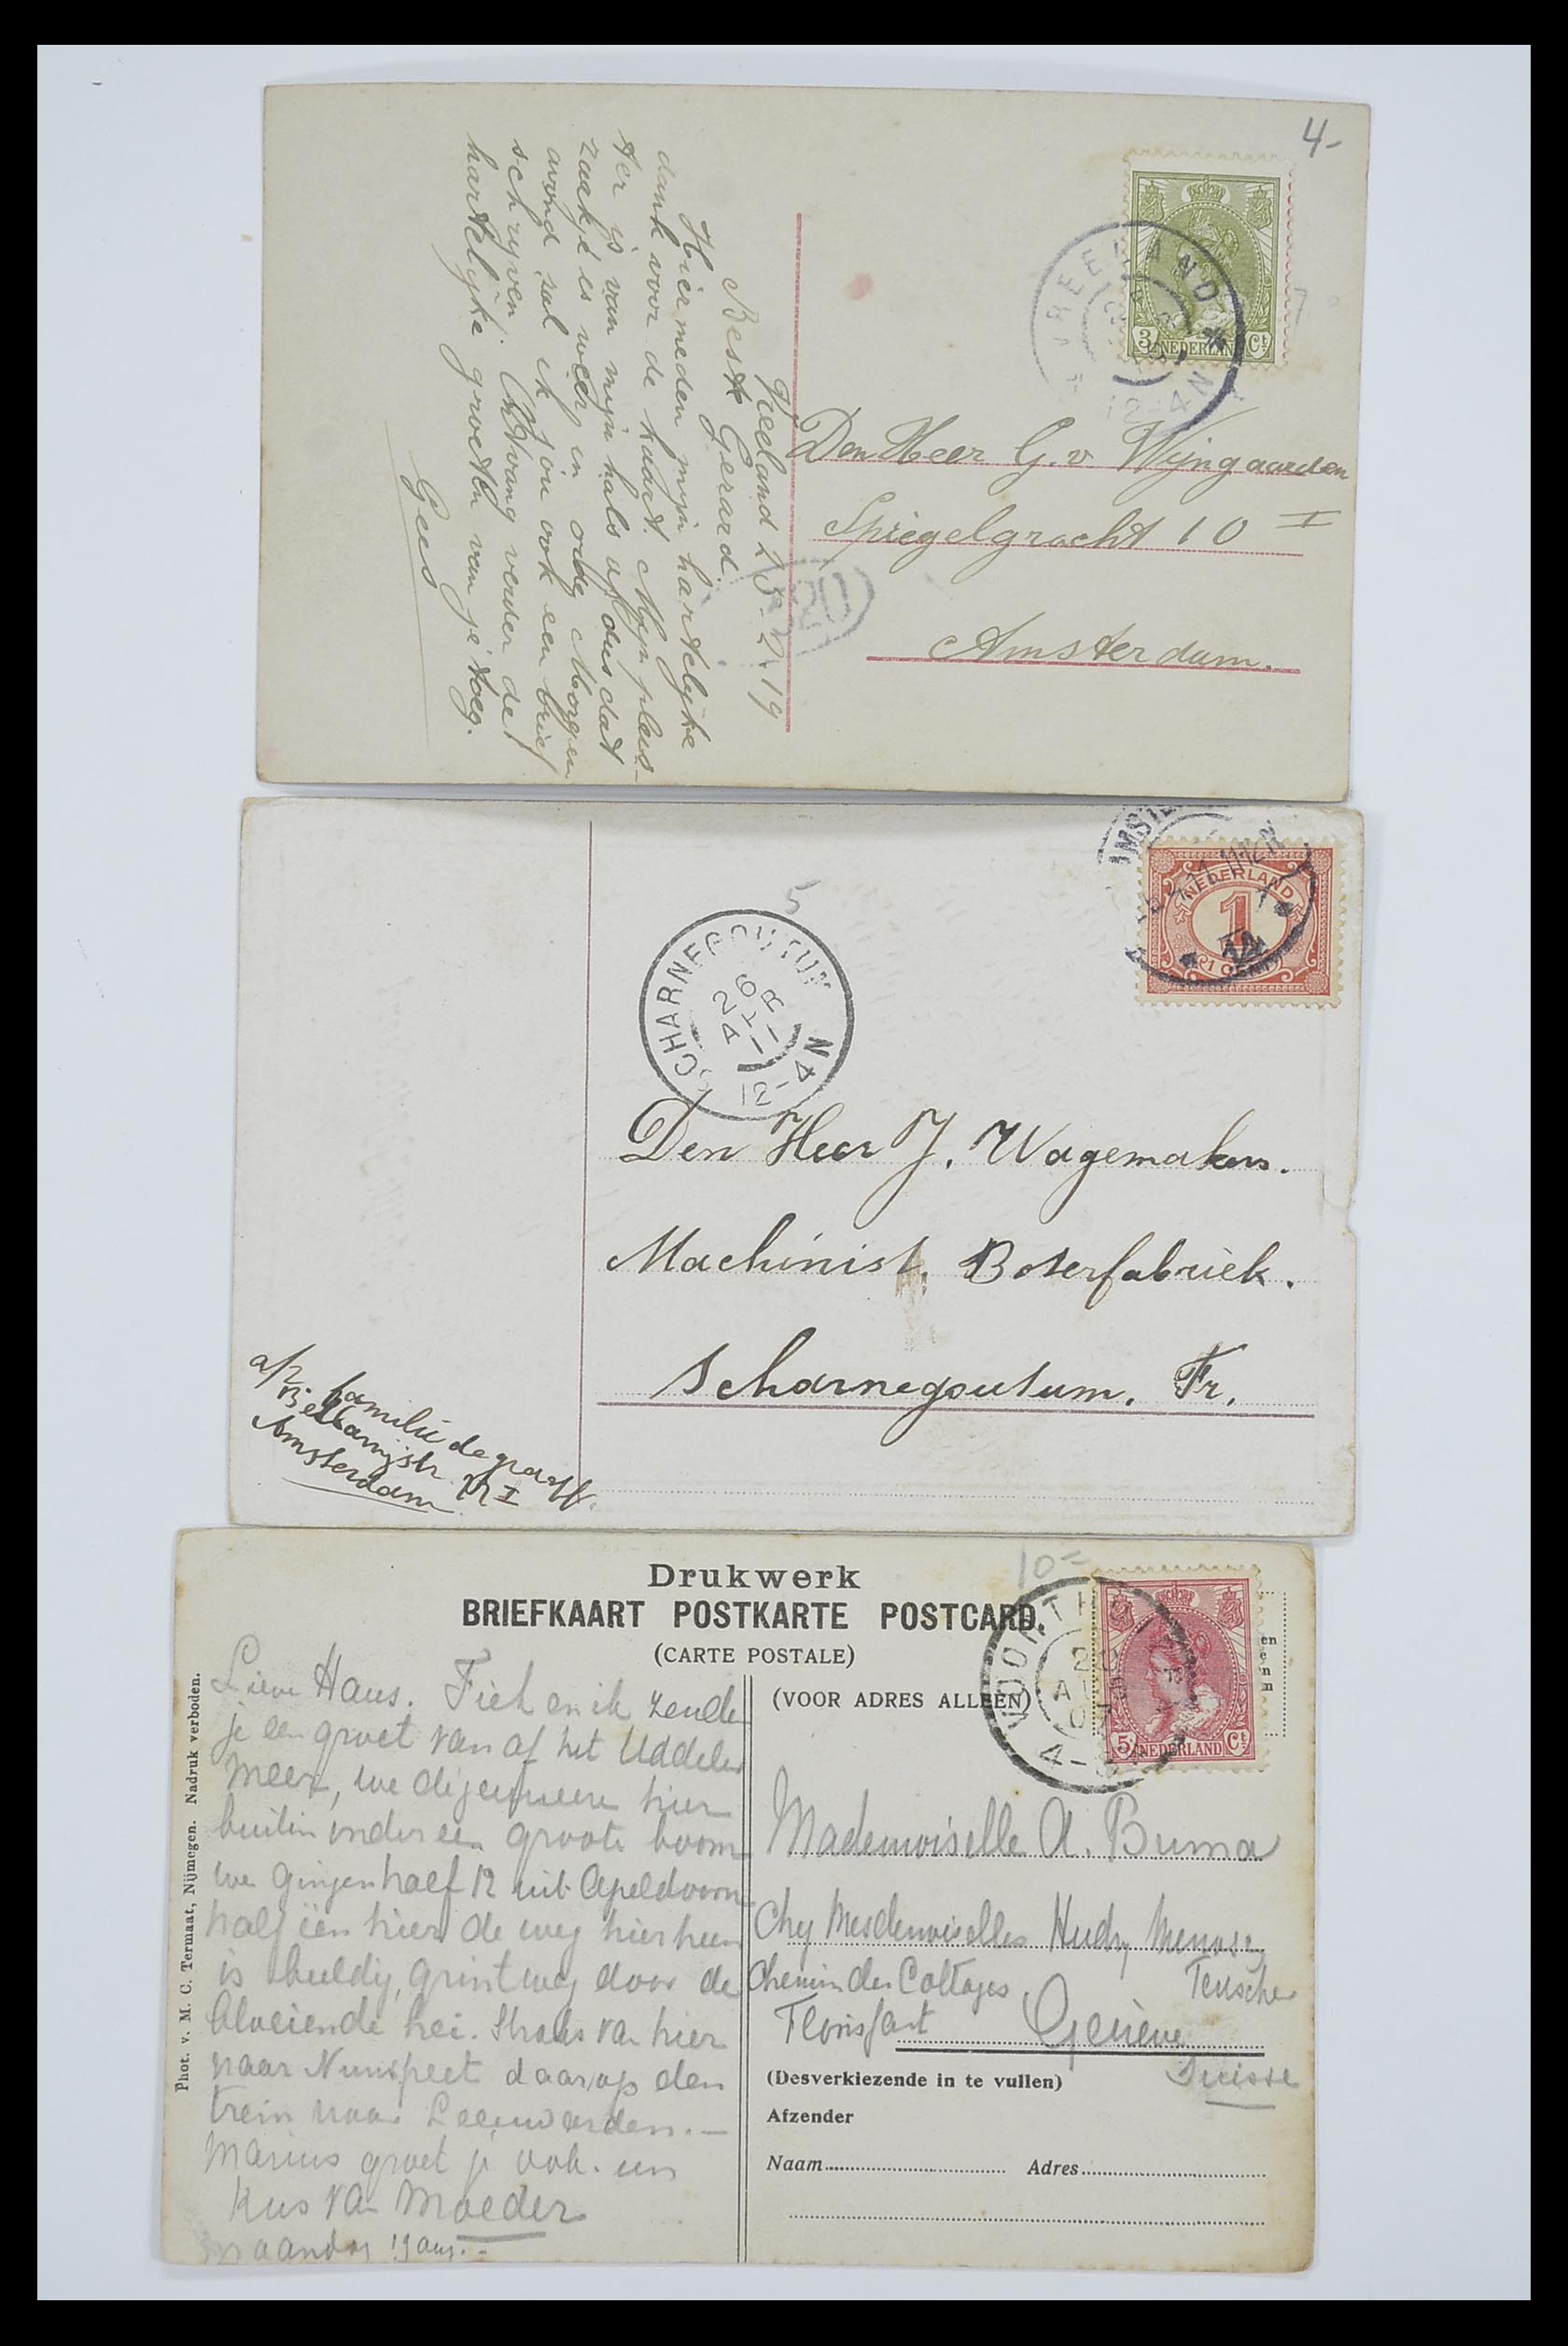 4-
3 Ct
NEDERLAND
VREELAND
12-4N
Vreeland 25-2-19
Beste Gerard.
Hiermeden mijn hartelijke
dank voor de kaart. Mijn pleis-
ter is van mijn hals af dus dat
zaakje is weer in orde Morgen
avond zal ik jou ook een brief
schrijven. Ontvang verder de
hartelijke groeten van je toeg.
Gees
Den Heer G. v. Wijngaarden
Spiegelgracht 10 I
Amsterdam.
20
5
NEDERLAND
1
1 CENT
SCHARNEGOUTUM
26
APR
11
12-4N
Den Heer J. Wagemakers.
Machinist, Boterfabriek.
Scharnegoutum. Fr.
afz familie de graaff
Bellamijstr.
Amsterdam
Drukwerk
BRIEFKAART POSTKARTE POSTCARD.
(CARTE POSTALE)
(VOOR ADRES ALLEEN)
10=
5 Ct
NEDERLAND
Phot. v. M. C. Termaat, Nijmegen. Nadruk verboden.
Lieve Hans. Fiek en ik zende
je een groet van af het Uddeler
Meer, we dejeuneere hier
buiten onder een groote boom
we gingen half 12 uit Apeldoorn
half een hier de weg hierheen
is heeldig, grintweg door de
bloeiende hei. Straks van hier
naar Nunspeet daarop den
trein naar Leeuwarden. —
Marius groet je ook. een
kus van Moeder
maandag 19 aug.
Mademoiselle A. Buma
Chez Mesdemoiselles Hudry Menos
Chemin des Cottages Teuscher
Florissant Genève
Suisse
(Desverkiezende in te vullen)
Afzender
Naam Adres